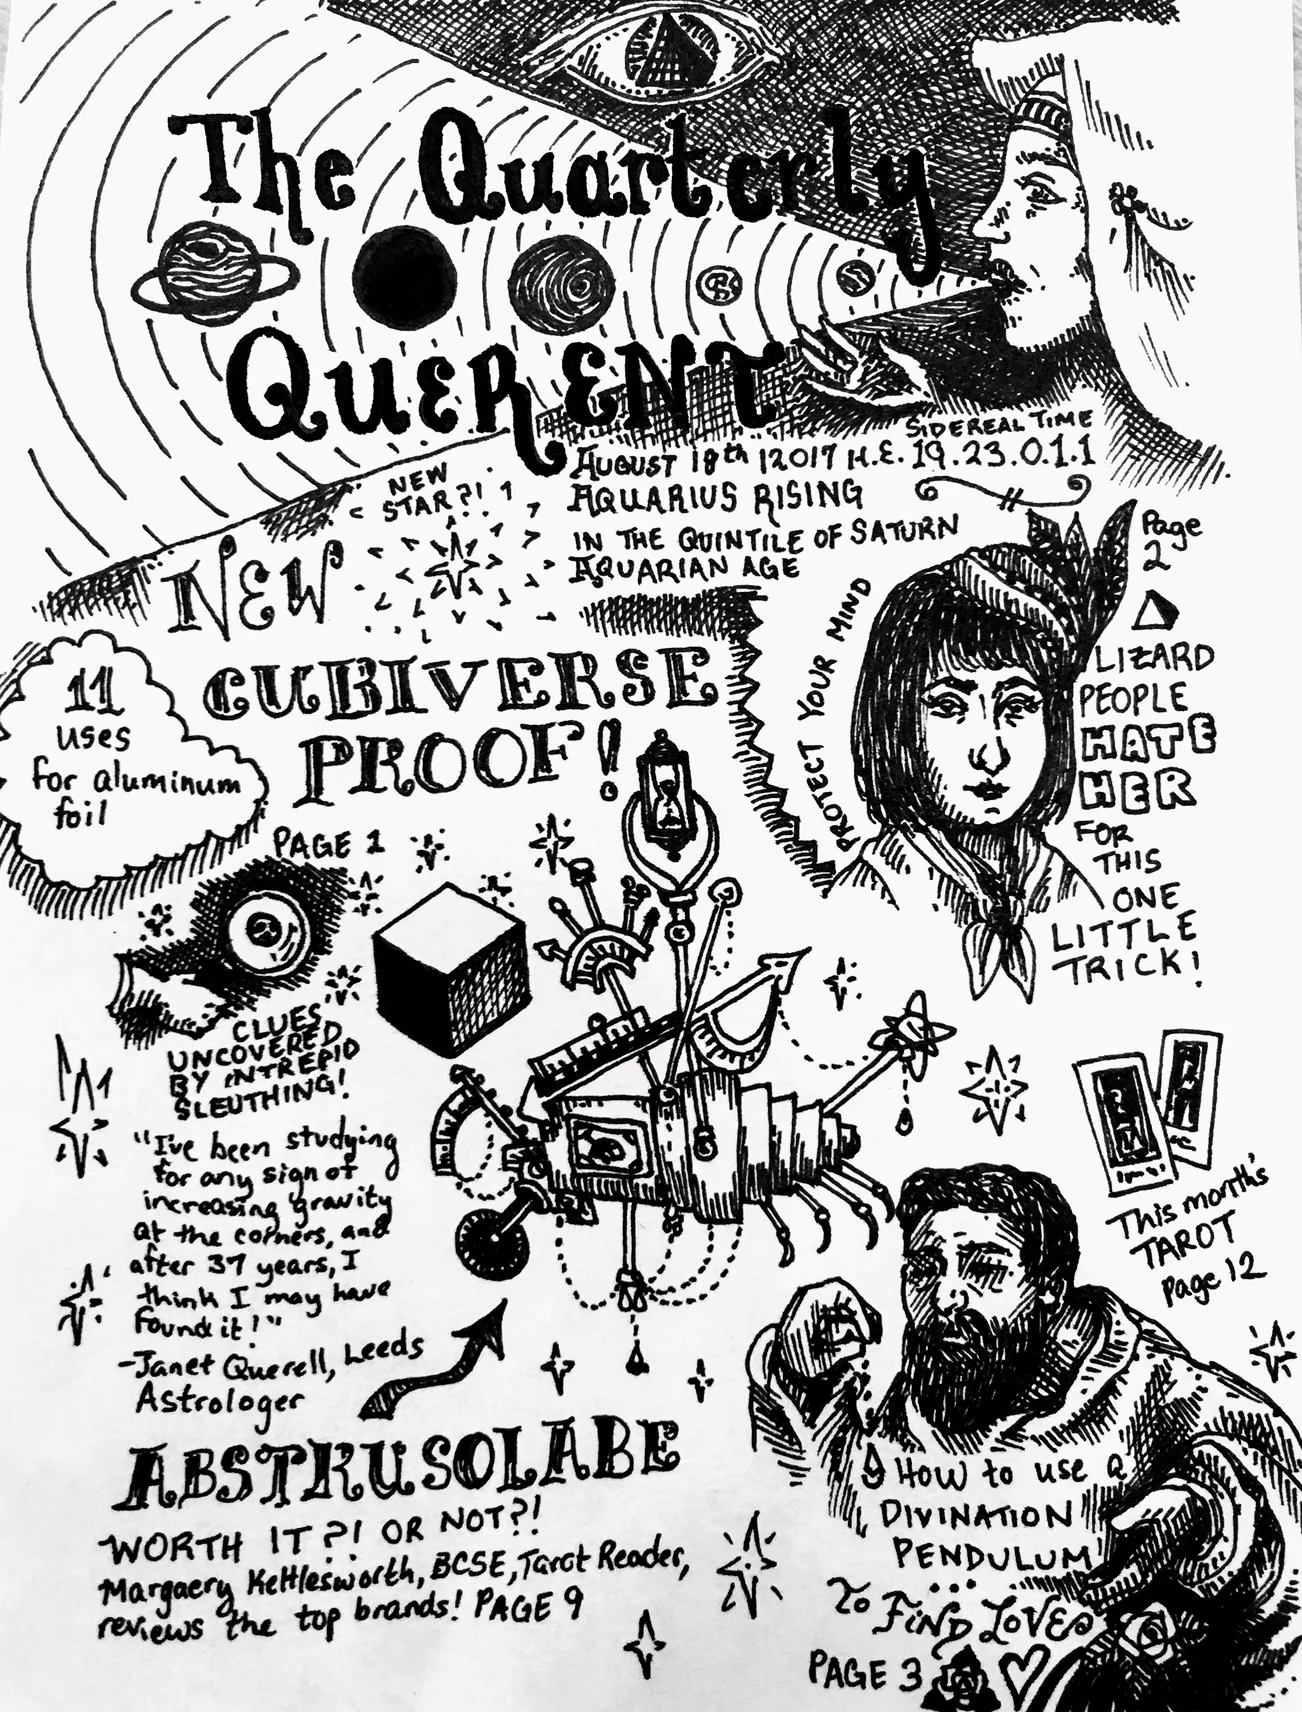 The Quarterly
QUERENT
SIDEREAL TIME
AUGUST 18th 12017 H.E. 19.23.0.1.1
AQUARIUS RISING
IN THE QUINTILE OF SATURN
AQUARIAN AGE
NEW
STAR?!
NEW
CUBIVERSE
PROOF!
PAGE 1
11
uses
for aluminum
foil
PROTECT YOUR MIND
Page
2
LIZARD
PEOPLE
HATE
HER
FOR
THIS
ONE
LITTLE
TRICK!
CLUES
UNCOVERED
BY INTREPID
SLEUTHING!
"I've been studying
for any sign of
increasing gravity
at the corners, and
after 37 years, I
think I may have
found it!"
-Janet Querell, Leeds
Astrologer
This month's
TAROT
page 12
ABSTRUSOLABE
WORTH IT?! OR NOT?!
Margaery Kettlesworth, BCSE, Tarot Reader,
reviews the top brands! PAGE 9
HOW to use a
DIVINATION
PENDULUM
...
To FIND LOVE
PAGE 3